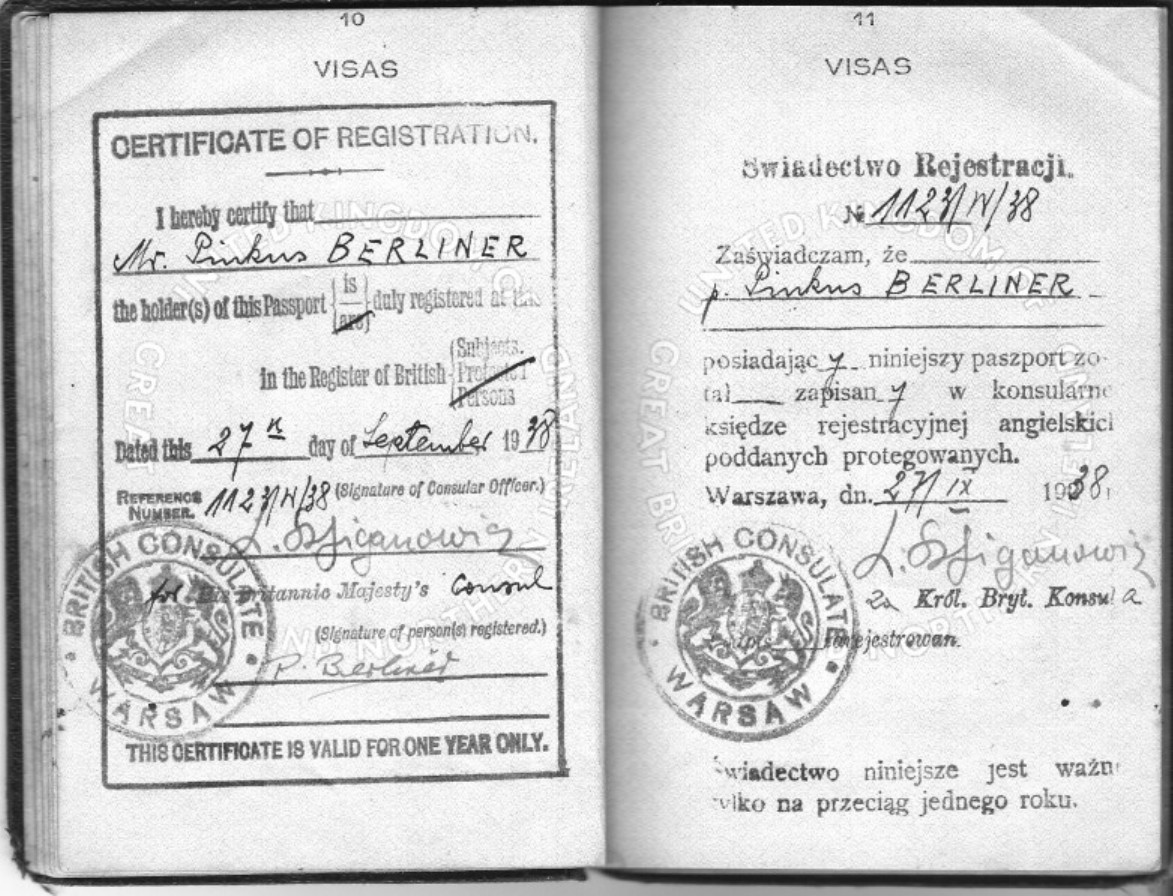 10
VISAS
CERTIFICATE OF REGISTRATION.
I hereby certify that
Mr. Pinkus BERLINER
the holder(s) of this Passport {is / are} duly registered at this
in the Register of British {Subjects. / Protected / Persons
Dated this 27th day of September 1938
REFERENCE NUMBER. 1123/IV/38 (Signature of Consular Officer.)
for His Britannic Majesty's Consul
(Signature of person(s) registered.)
P. Berliner
BRITISH CONSULATE
WARSAW
THIS CERTIFICATE IS VALID FOR ONE YEAR ONLY.
11
VISAS
Swiadectwo Rejestracji.
№ 1123/IV/38
Zaświadczam, że
p. Pinkus BERLINER
posiadając y niniejszy paszport zo-
tał zapisan y w konsularne
księdze rejestracyjnej angielskich
poddanych protegowanych.
Warszawa, dn. 27/IX 1938
za Król. Bryt. Konsula
zarejestrowan.
BRITISH CONSULATE
WARSAW
Swiadectwo niniejsze jest ważne
tylko na przeciąg jednego roku.
UNITED KINGDOM OF GREAT BRITAIN
NORTHERN IRELAND
UNITED KINGDOM OF GREAT BRITAIN
NORTHERN IRELAND